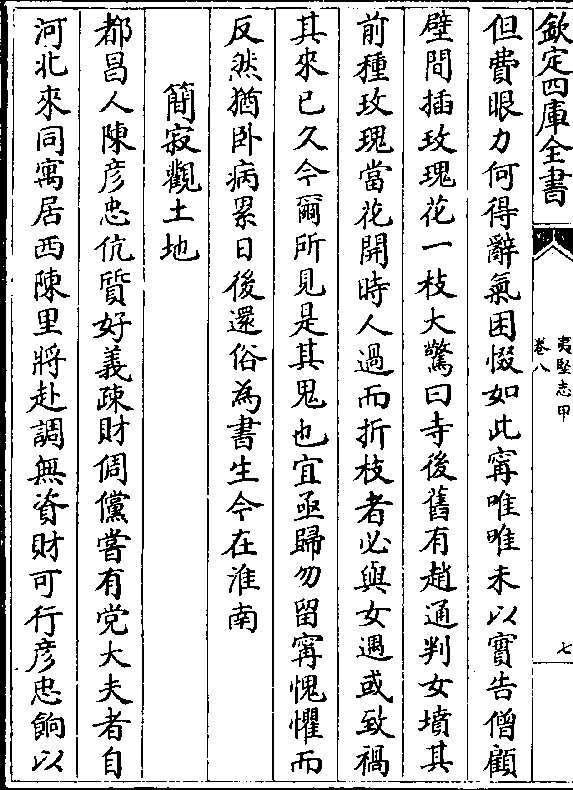 欽定四庫全書
夷堅志甲
卷八
七
但費眼力何得辭氣困惙如此寗唯唯未以實告僧顧
壁間插玫瑰花一枝大驚曰寺後舊有趙通判女墳其
前種玫瑰當花開時人過而折枝者必與女遇或致禍
其來已久今爾所見是其鬼也宜亟歸勿留寗愧懼而
反然猶卧病累日後還俗為書生今在淮南
簡寂觀土地
都昌人陳彦忠伉質好義疎財倜儻嘗有党大夫者自
河北來同寓居西陳里將赴調無資財可行彦忠餉以